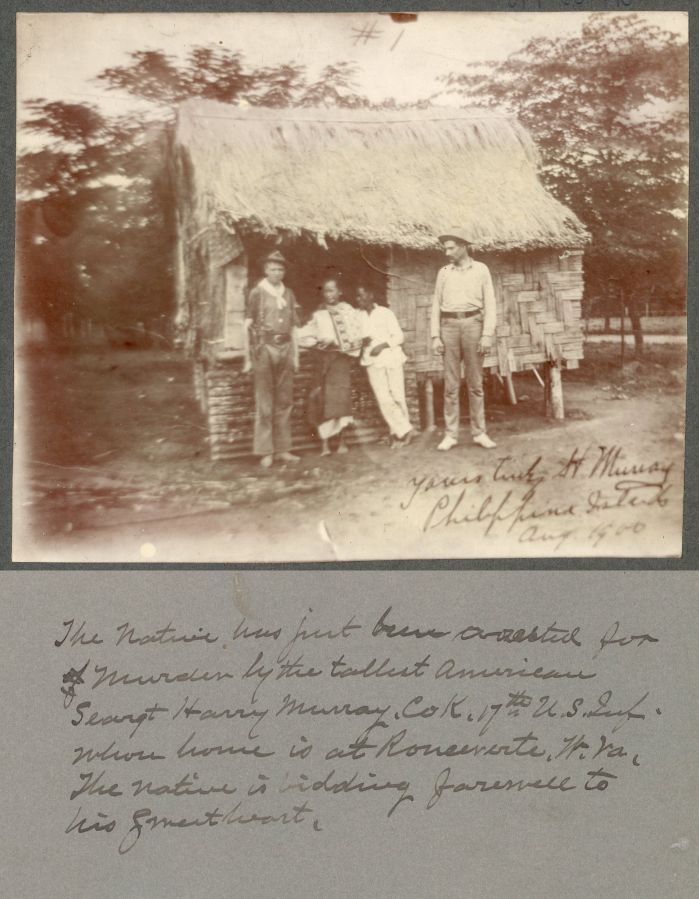 # 1
Yours truly H. Murray
Philippine Islands
Aug. 1900
The Native has just been arrested for
Murder by the tallest American
Seargt Harry Murray. Co K. 17th U.S. Inf.
whose home is at Ronceverte, W. Va.
The native is bidding farewell to
his Sweetheart.